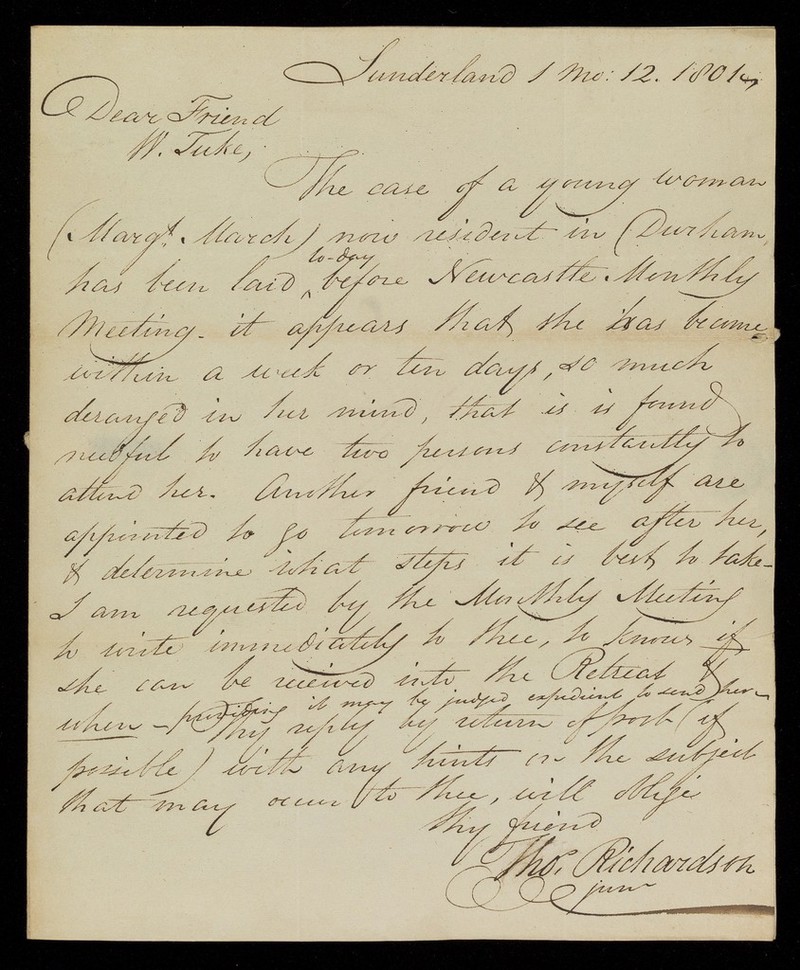 Sunderland 1 Mo: 12. 1801
Dear Friend
W. Tuke,
The case of a young woman
(Margt. March) now resident in Durham
has been laid ^to-day before Newcastle Monthly
Meeting - it appears that she has become
within a week or ten days, so much
deranged in her mind, that is is found
needful to have two persons constantly to
attend her. Another friend & myself are
appointed to go tomorrow to see after her,
& determine what steps it is best to take -
I am requested by the Monthly Meeting
to write immediately to thee, to know if
she can be received into the Retreat &
when - providing it may be judged expedient to send her -
Thy reply by return of post (if
possible) with any hints on the subject
that may occur to thee, will oblige
thy friend
Thos. Richardson
junr